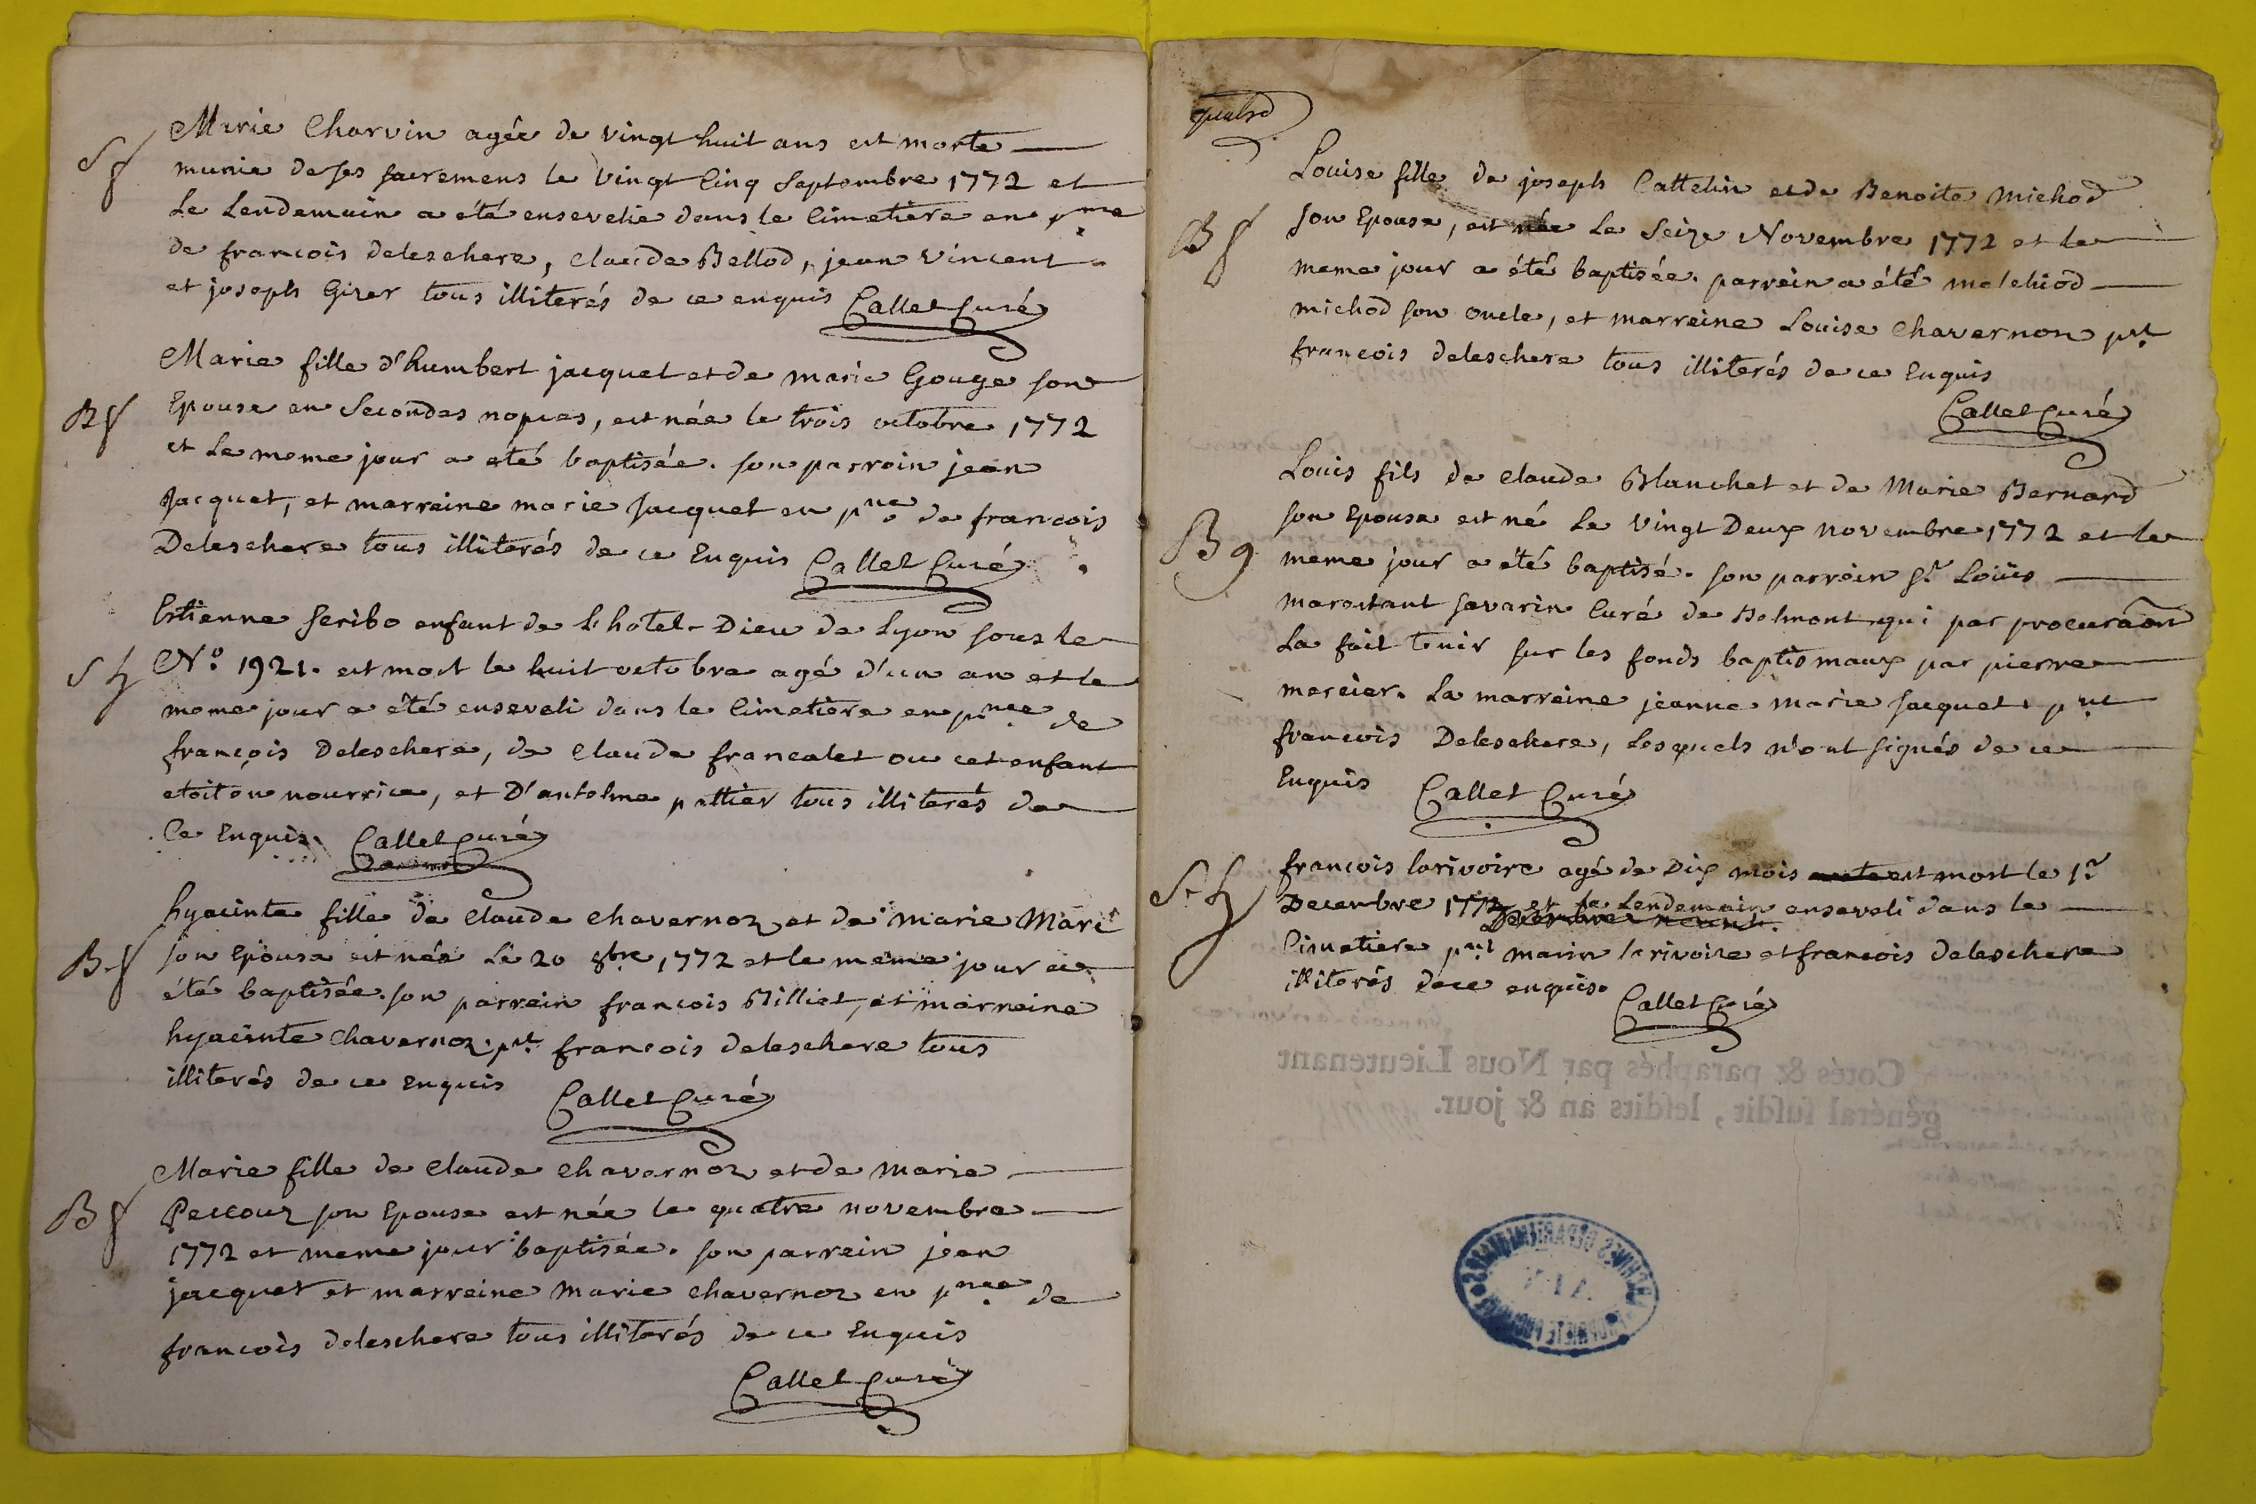 Sf
Marie Charvin agée de vingt huit ans est morte
munie de ses sacremens le vingt cinq septembre 1772 et
Le Lendemain a été ensevelie dans le Cimetière en pnce
de francois deleschere, claude Bellod, jean Vincent
et joseph Girer tous illiterés de ce enquis Callet Curé
Bf
Marie fille d'humbert jacquet et de marie Gouge son
Epouse en Secondes nopces, est née le trois octobre 1772
et Le meme jour a été baptisée. son parrein jean
Jacquet, et marreine marie jacquet en pnce de francois
Deleschere tous illiterés de ce Enquis Callet Curé
Sh
Estienne Scribo enfant de L'hotel-Dieu de Lyon sous le
No 1921. est mort le huit octobre agé d'un an et le
meme jour a été enseveli dans le Cimetière en pnce de
françois Deleschere, de Claude francalet ou cet enfant
etoit en nourrice, et D'antelme pattier tous illiterés de
Ce Enquis. Callet Curé
B-f
hyacinte fille de Claude chavernoz et de marie Mare
son Epouse est née Le 20 8bre 1772 et le meme jour a
été baptisée. son parrein françois Billiet, et marreine
hyacinte Chavernoz. pnt francois deleschere tous
illiterés de ce Enquis Callet Curé
Bf
Marie fille de Claude Chavernoz et de marie
Peccouz son Epouse est née le quatre novembre
1772 et meme jour baptisée. son parrein jean
jacquet et marreine Marie chavernoz en pnce de
francois deleschere tous illiterés de ce Enquis
Callet Curé
Bf
Louise fille de joseph Cattelin et de Benoite Michod
son Epouse, est née Le Seize Novembre 1772 et le
meme jour a été baptisée. parrein a été melchiod
michod son oncle, et marreine Louise Chavernon pnt
francois deleschere tous illiterés de ce Enquis
Callet Curé
B g
Louis fils de Claude Blanchet et de Marie Bernard
son Epouse est né Le vingt Deux novembre 1772 et le
meme jour a été baptisé. son parrein Sr Loüis
marostant savarin Curé de Belmont qui par procuraôn
La fait tenir sur les fonds baptismaux par pierre
mercier. La marreine jeanne marie jacquet. pnt
francois Deleschere, Lesquels n'ont signés de ce
Enquis Callet Curé
S-h
françois larivoire agé de Dix mois est mort le 1r
Decembre 1772 et le Lendemain enseveli dans le
Cimetiere pnt marin larivoire et francois deleschere
illiterés de ce enquis. Callet Curé
Cotés & paraphés par Nous Lieutenant
général susdit, lesdits an & jour.